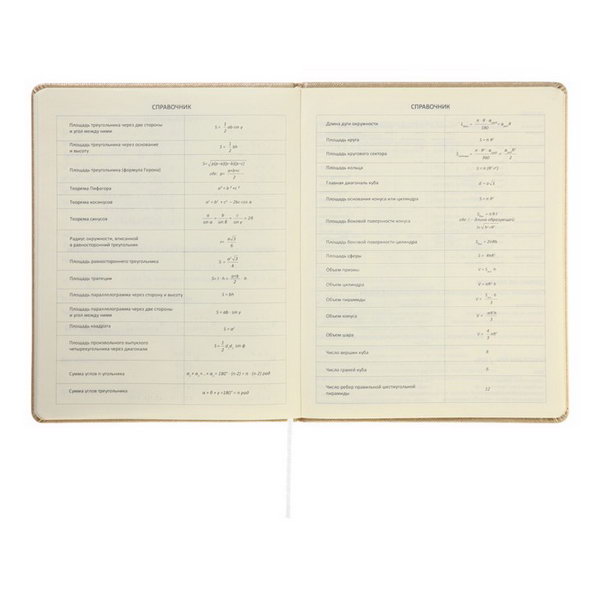 СПРАВОЧНИК
Площадь треугольника через две стороны
и угол между ними
S= 1/2 ab·sin γ
Площадь треугольника через основание
и высоту
S= 1/2 bh
Площадь треугольника (формула Герона)
S=√p(p-a)(p-b)(p-c)
где: p= a+b+c/2
Теорема Пифагора
a² + b² = c²
Теорема косинусов
a² = b² + c² - 2bc cos α
Теорема синусов
a/sin α = b/sin β = c/sin γ = 2R
Радиус окружности, вписанной
в равносторонний треугольник
r= a√3/6
Площадь равностороннего треугольника
S= a²√3/4
Площадь трапеции
Площадь параллелограмма через сторону и высоту
S = bh
Площадь параллелограмма через две стороны
и угол между ними
S = ab · sin γ
Площадь квадрата
S = a²
Площадь произвольного выпуклого
четырехугольника через диагонали
S= 1/2 d₁d₂ sin φ
Сумма углов n угольника
Сумма углов треугольника
α + β + γ =180° = π рад
СПРАВОЧНИК
Длина дуги окружности
Площадь круга
Площадь кругового сектора
Площадь кольца
Главная диагональ куба
d = a√3
Площадь основания конуса или цилиндра
Площадь боковой поверхности конуса
где l - длина образующей
Площадь боковой поверхности цилиндра
Площадь сферы
Объем призмы
Объем цилиндра
Объем пирамиды
Объем конуса
Объем шара
Число вершин куба
8
Число граней куба
6
Число ребер правильной шестиугольной
пирамиды
12